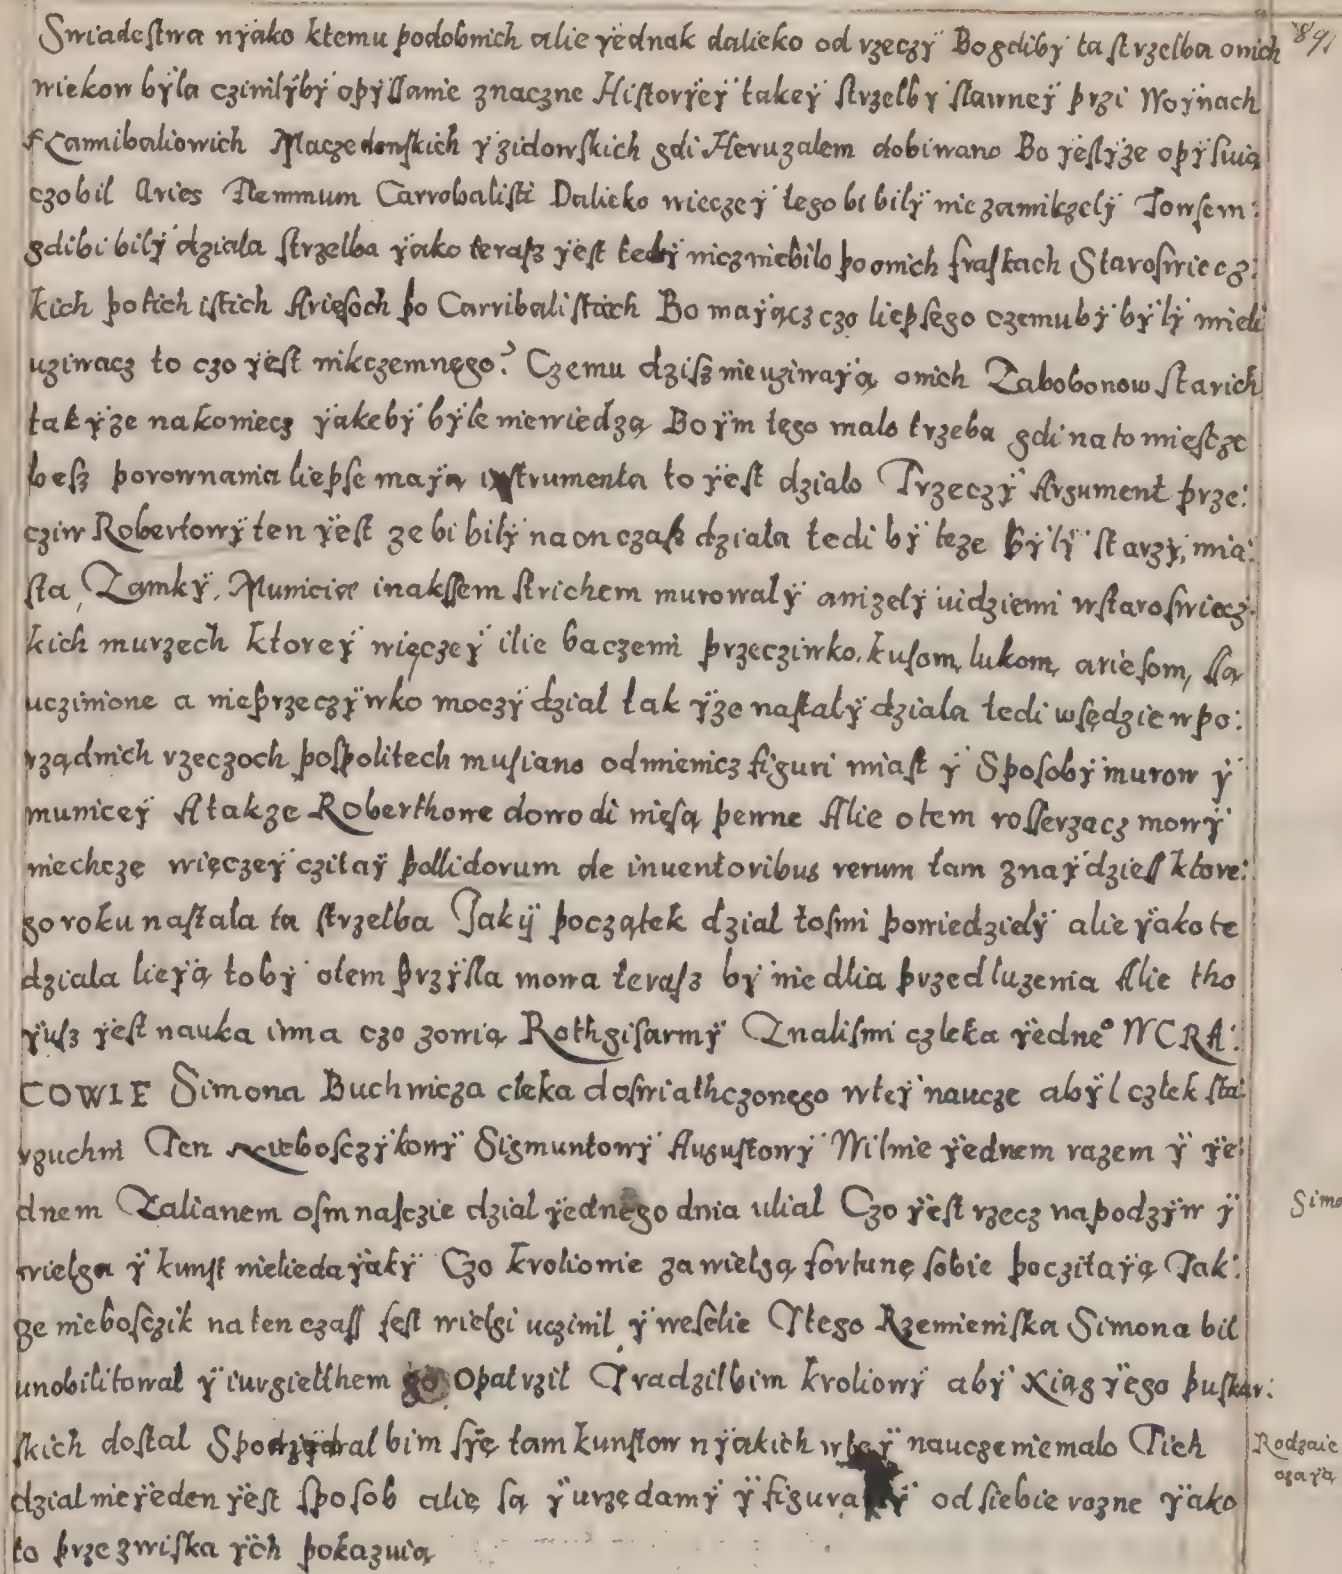 Swiadestwa nÿako ktemu podobnich alie ÿednak dalieko od rzeczÿ Bo gdibÿ ta strzelba onich 89
wiekow bÿla czinilÿbÿ opÿssanie znaczne Historÿeÿ takeÿ strzelbÿ slawneÿ przi Woÿnach
Cannibaliowich Maczedonskich ÿ zidowskich gdi Heruzalem dobiwano Bo ÿeslÿze opÿsuią
czo bil Aries Nemmum Carrobalisti Dalieko wieczeÿ tego bi bilÿ nie zamilczelÿ Jowsem:
gdibi bilÿ dziala strzelba ÿako terasz ÿest tedÿ nicz niebilo po onich fraskach Staroswiecz:
kich po tich istich Ariesoch po Carribalistach Bo maÿącz czo liepsego czemubÿ bÿlÿ mieli
uziwacz to czo ÿest nikczemnęgo? Czemu dzisz nie uziwaÿą onich Zabobonow starich
tak ÿze nakoniecz ÿakebÿ bÿle niewiedzą Bo ÿm tęgo malo trzeba gdi na to mięscze
besz porownania liepse maÿą instrumenta to ÿest dzialo Trzeczÿ Argument prze:
cziw Robertowÿ ten ÿest ze bi bilÿ na on czasz dziala tedi bÿ teze bÿlÿ starzÿ, mia:
sta, Zamkÿ, Municie inakssem strichem murowalÿ anizelÿ uidziemi wstaroswiecz:
kich murzech ktoreÿ więczeÿ ilie baczemi przecziwko, kusom, lukom, ariesom, są
uczinione a nieprzeczÿwko moczÿ dzial tak ÿze nastalÿ dziala tedi wsędzie w po:
rządnich rzeczoch pospolitech musiano odmienicz figuri miast ÿ Sposobÿ murow ÿ
municeÿ A takze Roberthowe dowodi niesą pewne Alie otem rosserzacz mowÿ
niechczę więczeÿ czitaÿ pollidorum de inuentoribus rerum tam znaÿdziess ktore:
go roku nastala ta strzelba Jakiÿ początek dzial tosmi powiedzielÿ alie ÿako te
dziala lieÿą tobÿ otem przÿsla mowa terasz bÿ nie dlia przedluzenia Alie tho
ÿusz ÿest nauka inna czo zowią Rothgisarmÿ Znalismi czleka ÿedneº W CRA:
COWIE Simona Buchwicza cleka doswiathczonego wteÿ naucze a bÿl czlek sta:
rzuchni Ten Niebosczÿkowÿ Sigmuntowÿ Augustowÿ Wilnie ÿednem razem ÿ ÿe:
dnem Zalianem osmnasczie dzial ÿednego dnia ulial Czo ÿest rzecz napodzÿw ÿ
wielga ÿ kunst nielieda ÿakÿ Czo kroliowie za wielgą fortunę sobie poczitaÿą Jak:
ze niebosczik na ten czass fest wielgi uczinil ÿ weselie Itego Rzemieniska Simona bil
unobilitowal ÿ iurgielthem go opatrzil Iradzilbim kroliowÿ abÿ xiag ÿego puskar:
skich dostal Spodzÿdral bim sÿę tam kunstow nÿakich wteÿ naucze niemalo Tich
dzial nieÿeden ÿest sposob alię są ÿ urzędamÿ ÿ figuramÿ od siebie rozne ÿako
to przezwiska ÿch pokazuią
Simo
Rodzaie